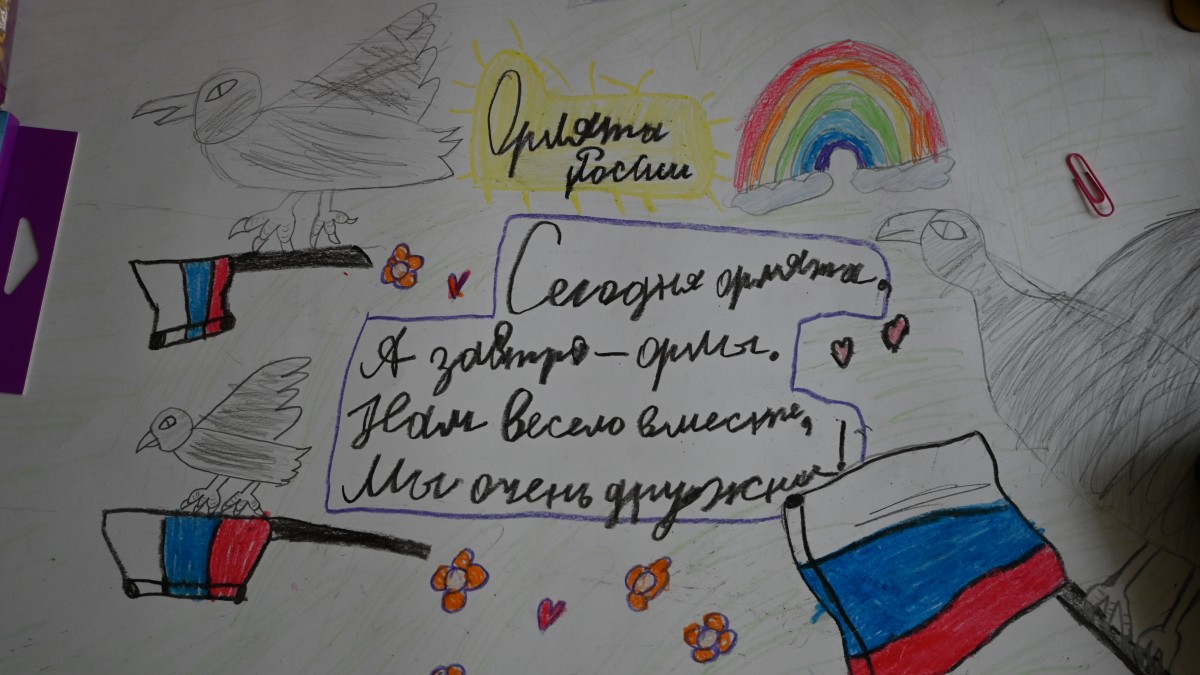 Орлята
России
Сегодня орлята,
А завтра – орлы.
Нам весело вместе,
Мы очень дружны!